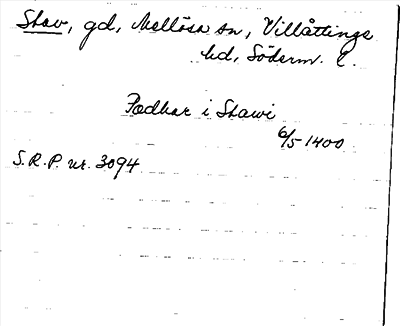 Stav, gd, Mellösa sn, Villåttinge
hd, Söderm. l.
Pædhar i Stawi
6/5-1400
S.R.P. nr. 3094